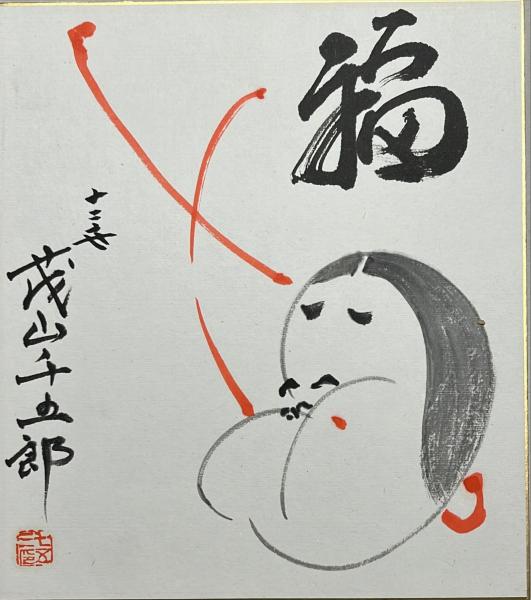 福
十二世
茂山千五郎